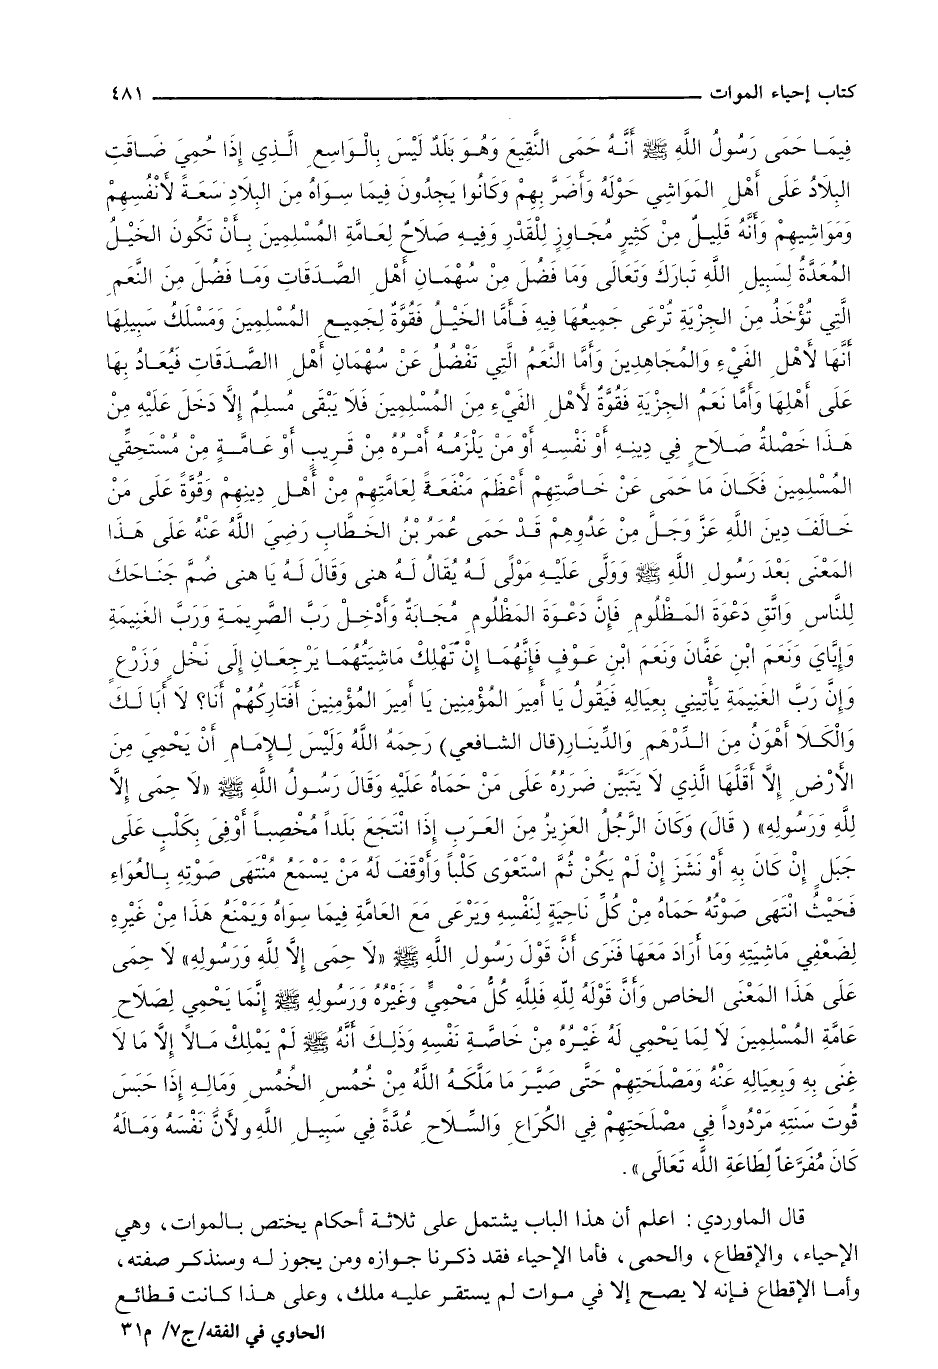 كتاب إحياء الموات ــــــــــــــــــــــــــــــــ ٤٨١
فِيمَا حَمَى رَسُولُ اللَّهِ ﷺ أَنَّهُ حَمَى النَّقِيعَ وَهُوَ بَلَدٌ لَيْسَ بِالْوَاسِعِ الَّذِي إِذَا حُمِيَ ضَاقَتِ
البِلَادُ عَلَى أَهْلِ المَوَاشِي حَوْلَهُ وَأَضَرَّ بِهِمْ وَكَانُوا يَجِدُونَ فِيمَا سِوَاهُ مِنَ البِلَادِ سَعَةً لأَنْفُسِهِمْ
وَمَوَاشِيهِمْ وَأَنَّهُ قَلِيلٌ مِنْ كَثِيرٍ مُجَاوِزٍ لِلْقَدْرِ وَفِيهِ صَلَاحٌ لِعَامَّةِ المُسْلِمِينَ بِأَنْ تَكُونَ الخَيْلُ
المُعَدَّةُ لِسَبِيلِ اللَّهِ تَبَارَكَ وَتَعَالَى وَمَا فَضُلَ مِنْ سُهْمَانِ أَهْلِ الصَّدَقَاتِ وَمَا فَضُلَ مِنَ النَّعَمِ
الَّتِي تُؤْخَذُ مِنَ الجِزْيَةِ تُرْعَى جَمِيعُهَا فِيهِ فَأَمَّا الخَيْلُ فَقُوَّةٌ لِجَمِيعِ المُسْلِمِينَ وَمَسْلَكُ سَبِيلِهَا
أَنَّهَا لأَهْلِ الفَيْءِ وَالمُجَاهِدِينَ وَأَمَّا النَّعَمُ الَّتِي تَفْضُلُ عَنْ سُهْمَانِ أَهْلِ االصَّدَقَاتِ فَيُعَادُ بِهَا
عَلَى أَهْلِهَا وَأَمَّا نَعَمُ الجِزْيَةِ فَقُوَّةٌ لأَهْلِ الفَيْءِ مِنَ المُسْلِمِينَ فَلَا يَبْقَى مُسْلِمٌ إِلَّا دَخَلَ عَلَيْهِ مِنْ
هَذَا خَصْلَةُ صَلَاحٍ فِي دِينِهِ أَوْ نَفْسِهِ أَوْ مَنْ يَلْزَمُهُ أَمْرُهُ مِنْ قَرِيبٍ أَوْ عَامَّةٍ مِنْ مُسْتَحِقِّي
المُسْلِمِينَ فَكَانَ مَا حَمَى عَنْ خَاصَّتِهِمْ أَعْظَمَ مَنْفَعَةً لِعَامَّتِهِمْ مِنْ أَهْلِ دِينِهِمْ وَقُوَّةً عَلَى مَنْ
خَالَفَ دِينَ اللَّهِ عَزَّ وَجَلَّ مِنْ عَدُوِهِمْ قَدْ حَمَى عُمَرُ بْنُ الخَطَّابِ رَضِيَ اللَّهُ عَنْهُ عَلَى هَذَا
المَعْنَى بَعْدَ رَسُولِ اللَّهِ ﷺ وَوَلَّى عَلَيْهِ مَوْلًى لَهُ يُقَالُ لَهُ هنى وَقَالَ لَهُ يَا هنى ضُمَّ جَنَاحَكَ
لِلنَّاسِ وَاتَّقِ دَعْوَةَ المَظْلُومِ فَإِنَّ دَعْوَةَ المَظْلُومِ مُجَابَةٌ وَأَدْخِلْ رَبَّ الصَّرِيمَةِ وَرَبَّ الغَنِيمَةِ
وَإِيَّايَ وَنَعَمَ ابْنِ عَفَّانَ وَنَعَمَ ابْنِ عَوْفٍ فَإِنَّهُمَا إِنْ تَهْلِكْ مَاشِيَتُهُمَا يَرْجِعَانِ إِلَى نَخْلٍ وَزَرْعٍ
وَإِنَّ رَبَّ الغَنِيمَةِ يَأْتِينِي بِعِيَالِهِ فَيَقُولُ يَا أَمِيرَ المُؤْمِنِين يَا أَمِيرَ المُؤْمِنِينَ أَفَتَارِكُهُمْ أَنَا؟ لَا أَبَا لَكَ
وَالْكَلَا أَهْوَنُ مِنَ الدِّرْهَمِ وَالدِّينَارِ(قال الشافعي) رَحِمَهُ اللَّهُ وَلَيْسَ لِلإِمَامِ أَنْ يَحْمِيَ مِنَ
الأَرْضِ إِلَّا أَقَلَّهَا الَّذِي لَا يَتَبَيَّن ضَرَرُهُ عَلَى مَنْ حَمَاهُ عَلَيْهِ وَقَالَ رَسُولُ اللَّهِ ﷺ «لَا حِمَى إِلَّا
لِلَّهِ وَرَسُولِهِ» ( قَالَ) وَكَانَ الرَّجُلُ العَزِيزُ مِنَ العَرَبِ إِذَا انْتَجَعَ بَلَداً مُخْصِباً أَوْفَى بِكَلْبٍ عَلَى
جَبَلٍ إِنْ كَانَ بِهِ أَوْ نَشَزَ إِنْ لَمْ يَكُنْ ثُمَّ اسْتَعْوَى كَلْباً وَأَوْقَفَ لَهُ مَنْ يَسْمَعُ مُنْتَهَى صَوْتِهِ بِالعُوَاءِ
فَحَيْثُ انْتَهَى صَوْتُهُ حَمَاهُ مِنْ كُلِّ نَاحِيَةٍ لِنَفْسِهِ وَيَرْعَى مَعَ العَامَّةِ فِيمَا سِوَاهُ وَيَمْنَعُ هَذَا مِنْ غَيْرِهِ
لِضَعْفِي مَاشِيَتِهِ وَمَا أَرَادَ مَعَهَا فَنَرَى أَنَّ قَوْلَ رَسُولِ اللَّهِ ﷺ «لَا حِمَى إِلَّا لِلَّهِ وَرَسُولِهِ» لَا حِمَى
عَلَى هَذَا المَعْنَى الخاص وَأَنَّ قَوْلَهُ لِلّهِ فَلِلهِ كُلُّ مَحْمِيٍّ وَغَيْرُهُ وَرَسُولِهِ ﷺ إِنَّمَا يَحْمِي لِصَلَاحِ
عَامَّةِ المُسْلِمِينَ لَا لِمَا يَحْمِي لَهُ غَيْرُهُ مِنْ خَاصَّةِ نَفْسِهِ وَذَلِكَ أَنَّهُ ﷺ لَمْ يَمْلِكْ مَالاً إِلَّا مَا لَا
غِنَى بِهِ وَبِعِيَالِهِ عَنْهُ وَمَصْلَحَتِهِمْ حَتَّى صَيَّرَ مَا مَلَّكَهُ اللَّهُ مِنْ خُمُسِ الخُمُسِ وَمَالِهِ إِذَا حَبَسَ
قُوتَ سَنَتِهِ مَرْدُوداً فِي مصْلَحَتِهِمْ فِي الكُرَاعِ وَالسِّلَاحِ عُدَّةً فِي سَبِيلِ اللَّهِ ولأَنَّ نَفْسَهُ وَمَالَهُ
كَانَ مُفَرَّغاً لِطَاعَةِ اللَّه تَعَالَى».
قال الماوردي: اعلم أن هذا الباب يشتمل على ثلاثة أحكام يختص بالموات، وهي
الإحياء، والإقطاع، والحمى، فأما الإحياء فقد ذكرنا جوازه ومن يجوز له وسنذكر صفته،
وأما الإقطاع فإنه لا يصح إلا في موات لم يستقر عليه ملك، وعلى هذا كانت قطائع
الحاوي في الفقه/ ج٧/ م٣١